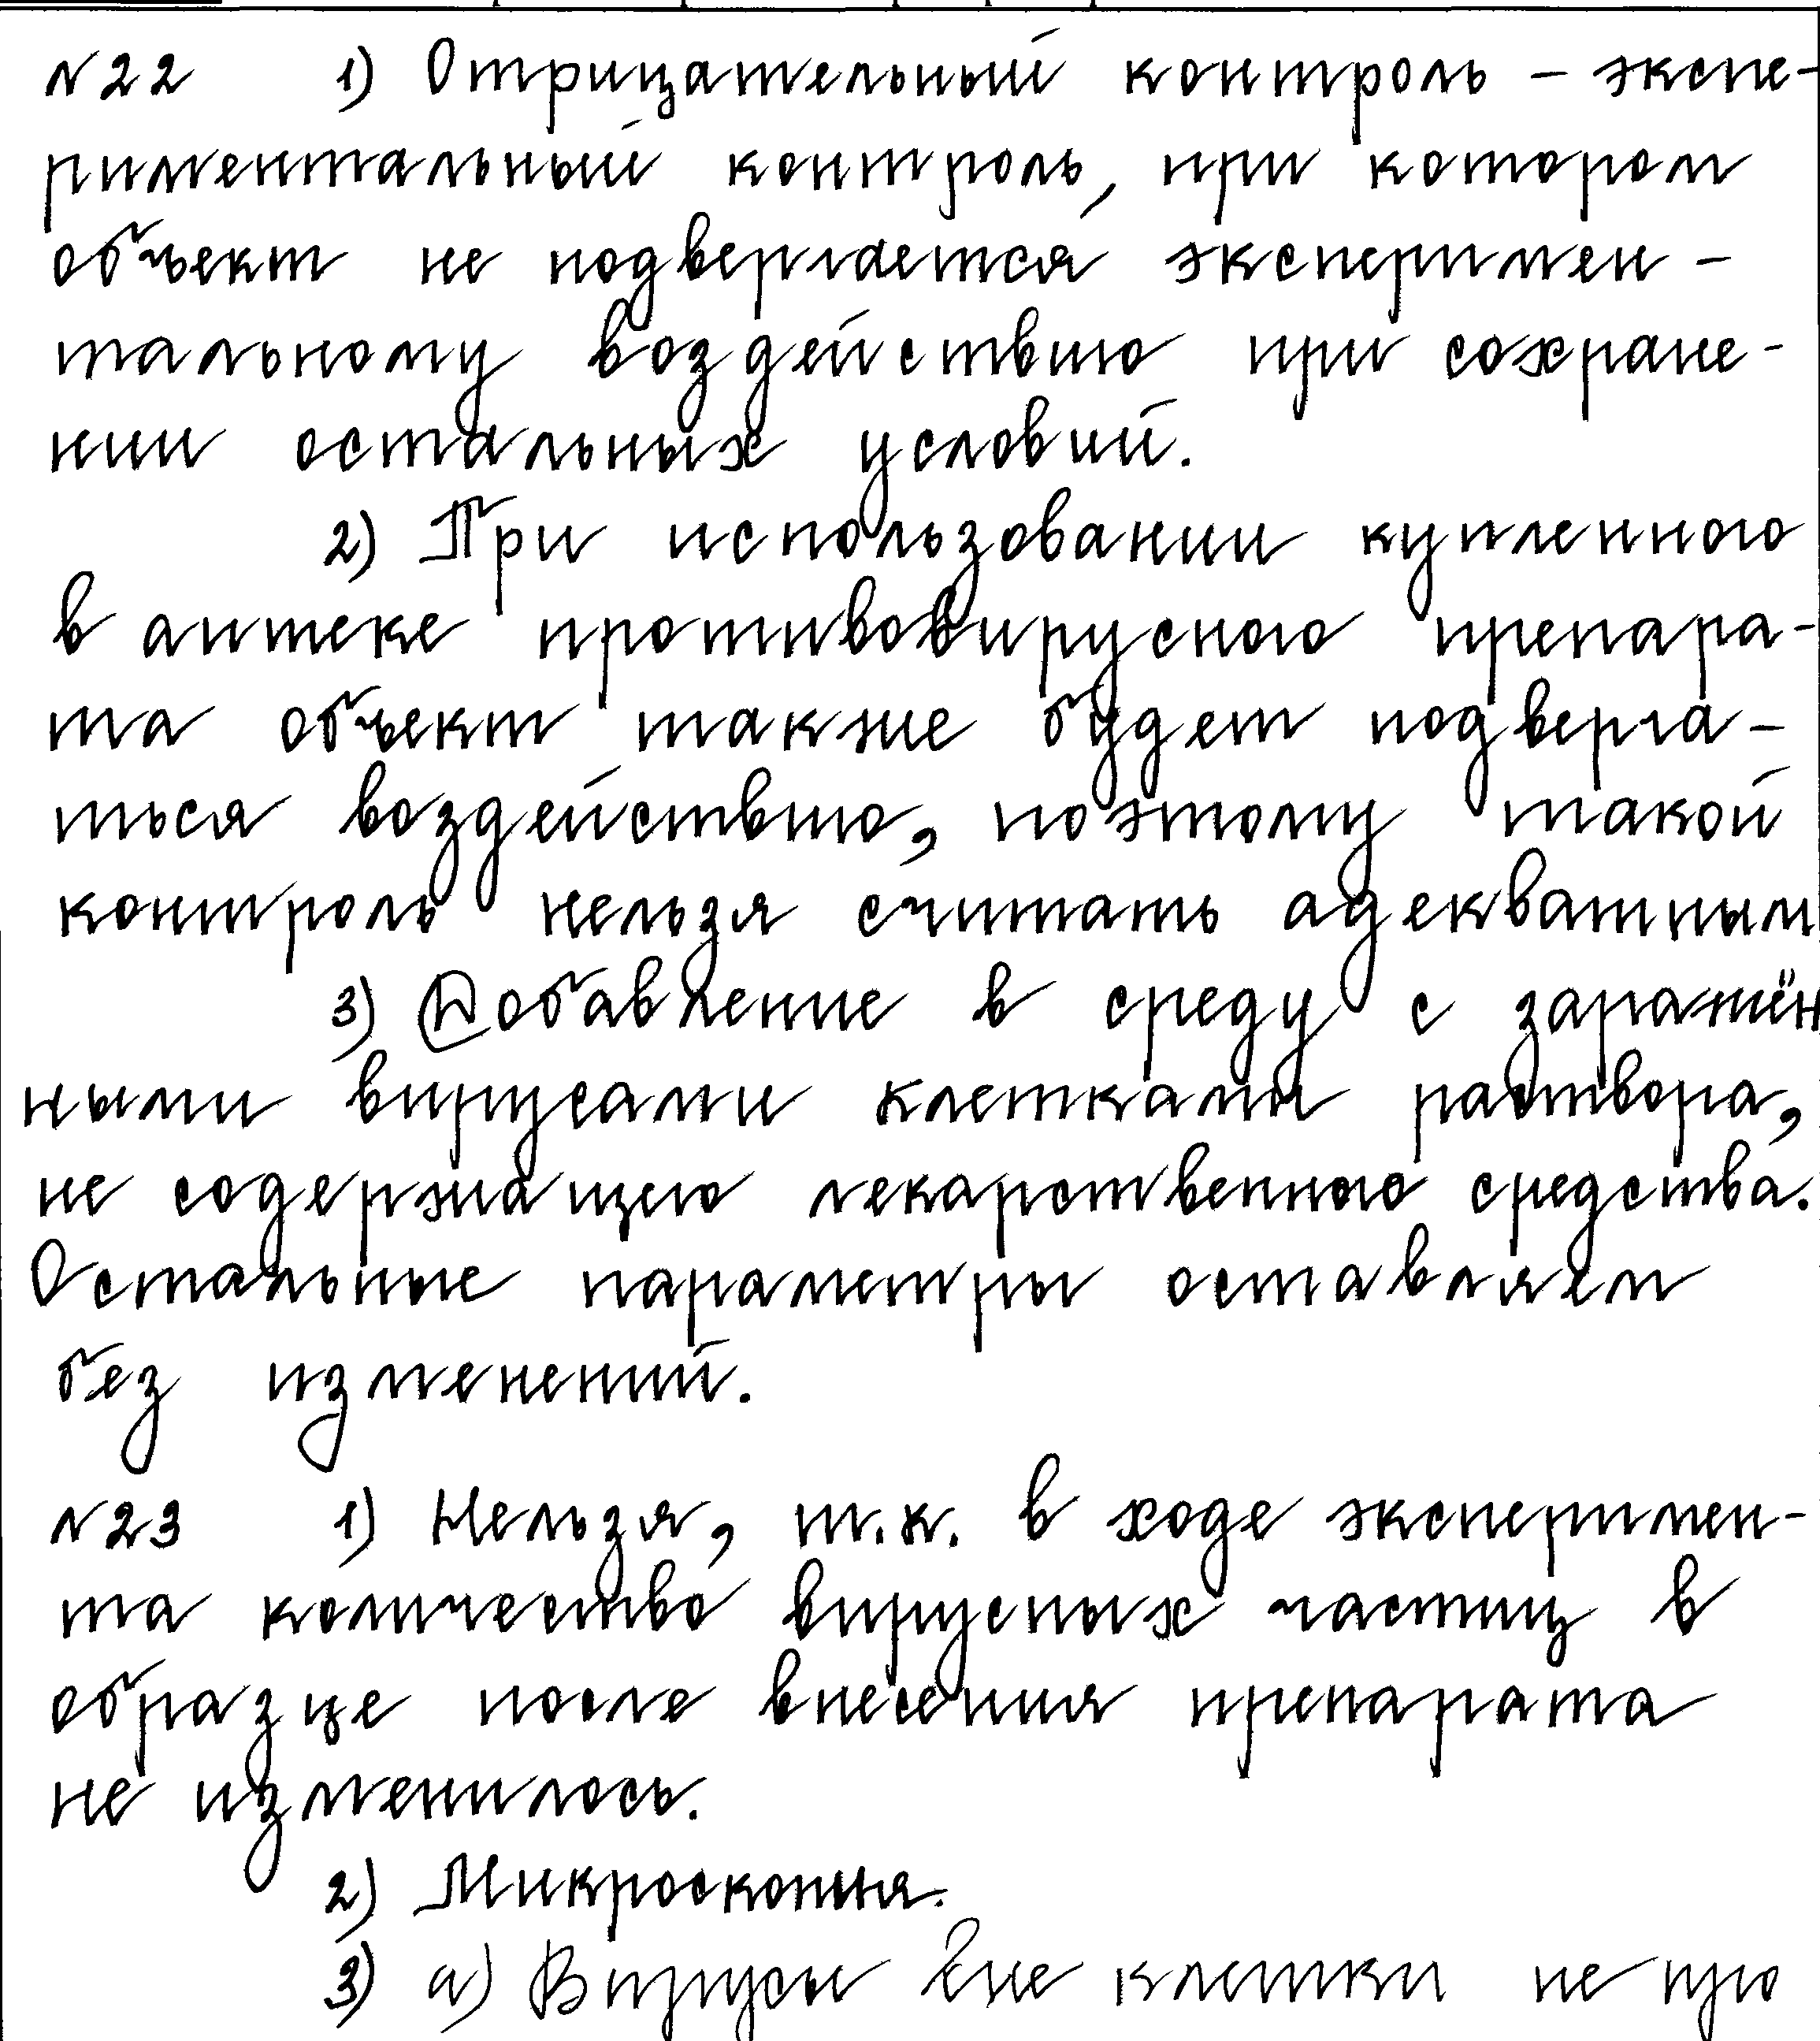 №22 1) Отрицательный контроль – экспе-
риментальный контроль, при котором
объект не подвергается эксперимен-
тальному воздействию при сохране-
нии остальных условий.
2) При использовании купленного
в аптеке противовирусного препара-
та объект также будет подверга-
ться воздействию, поэтому такой
контроль нельзя считать адекватным
3) Добавление в среду с заражён
ными вирусами клетками раствора,
не содержащего лекарственного средства.
Остальные параметры оставляем
без изменений.
№23 1) Нельзя, т.к. в ходе эксперимен-
та количество вирусных частиц в
образце после внесения препарата
не изменилось.
2) Микроскопия.
3) а) Вирусы вне клетки не про